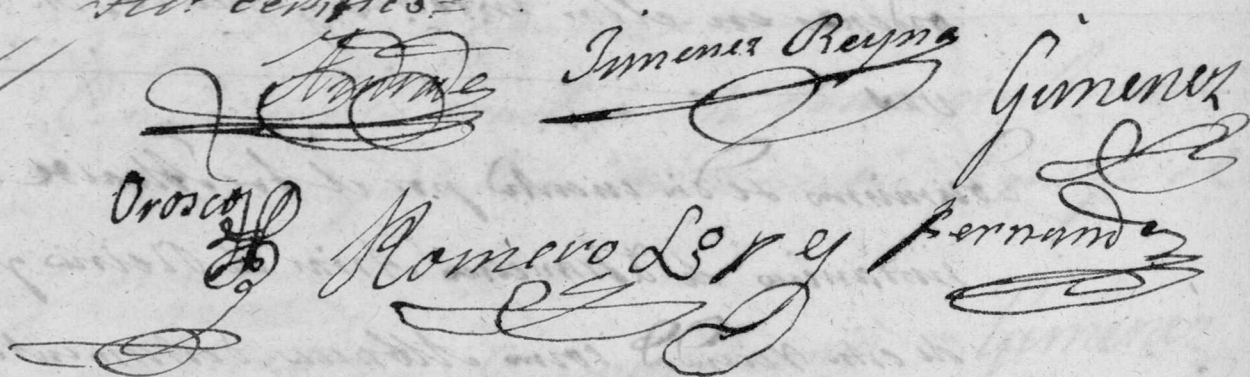 Andrade Jimenez Reyna Gimenez
Orosco Romero Lopez Fernandez